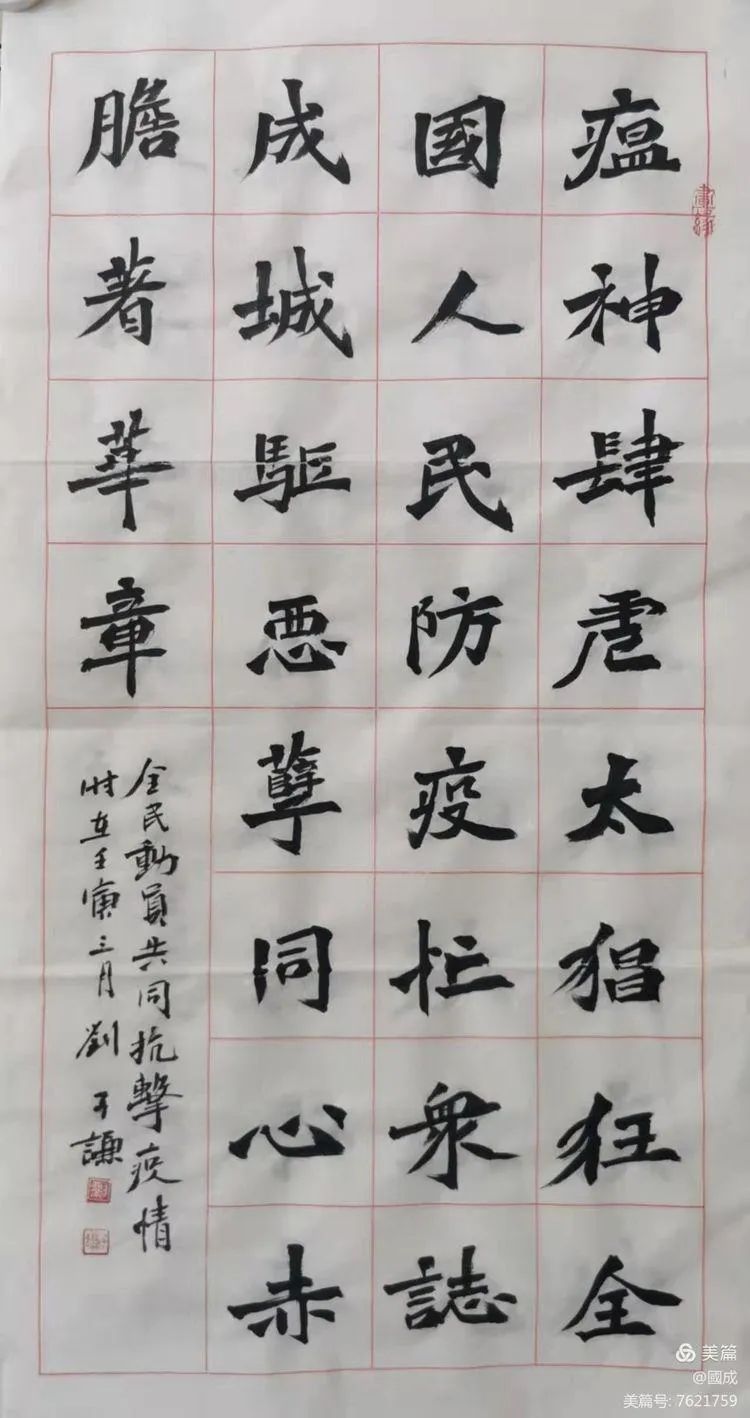 瘟神肆虐太猖狂全
國人民防疫忙衆誌
成城驅惡孽同心赤
膽著華章
全民動員共同抗擊疫情
時在壬寅三月劉于謙
美篇
@國成
美篇号: 7621759